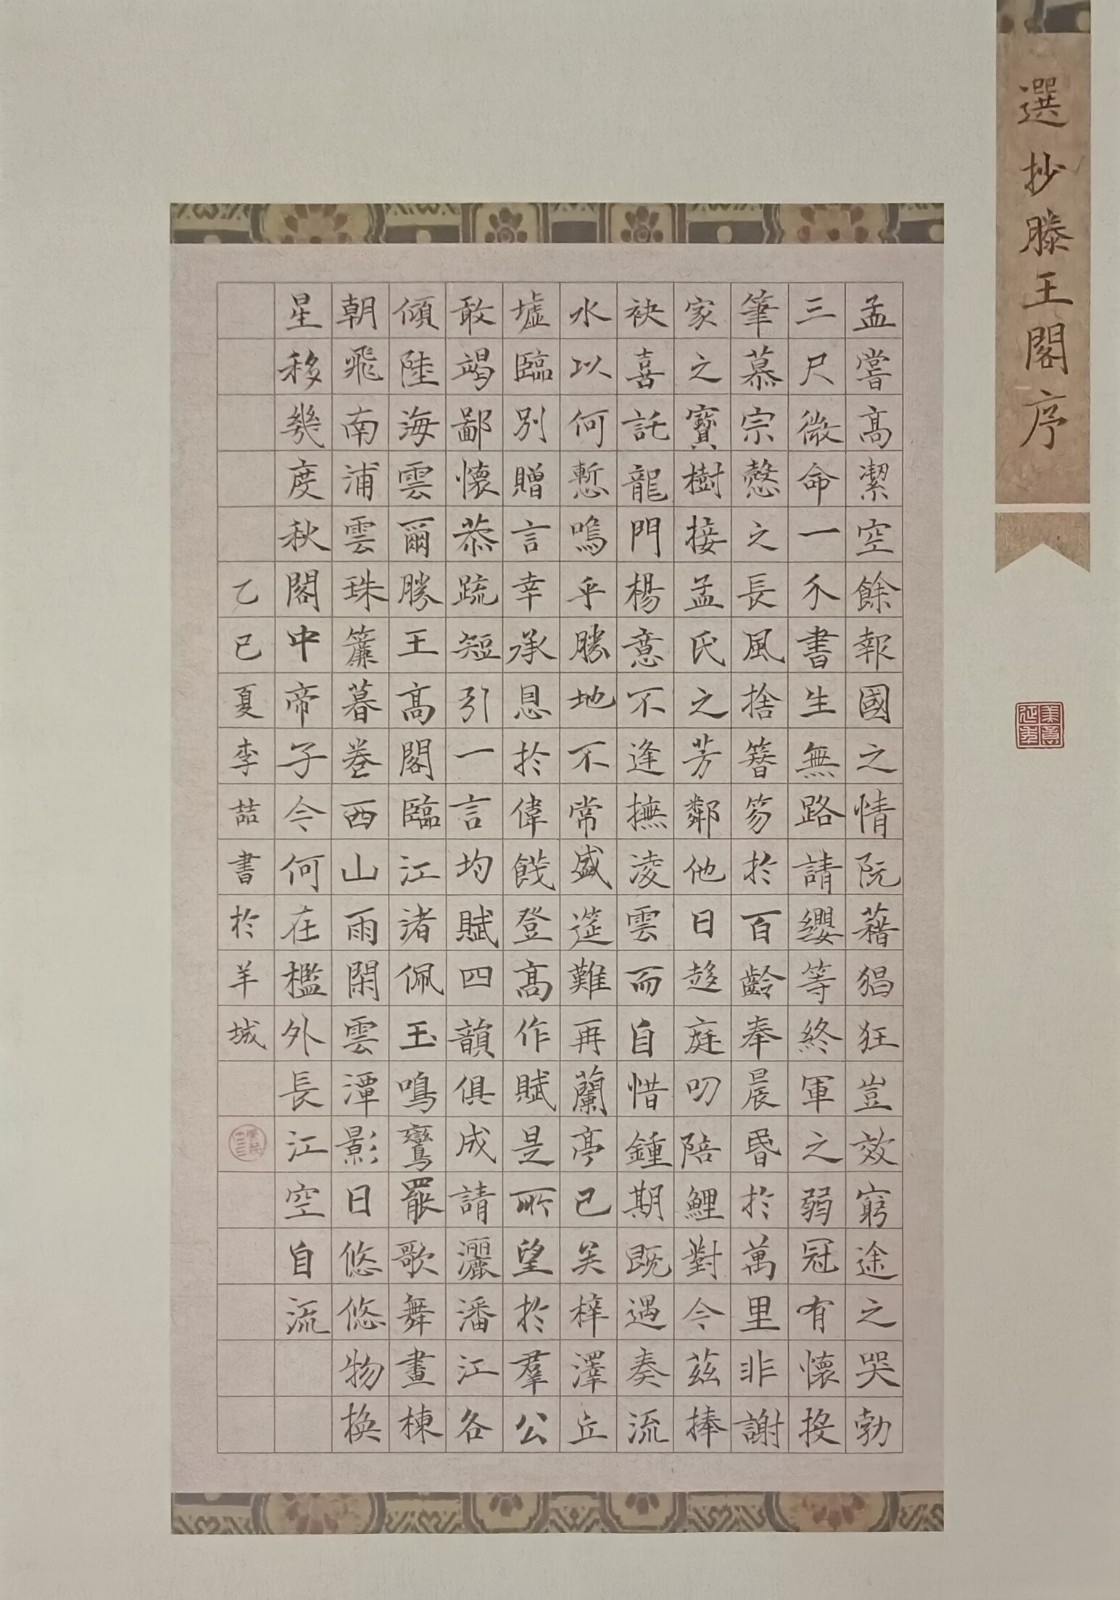 選抄滕王閣序
孟嘗高潔空餘報國之情阮藉猖狂豈效窮途之哭勃
三尺微命一介書生無路請纓等終軍之弱冠有懷投
筆慕宗慤之長風捨簪笏於百齡奉晨昏於萬里非謝
家之寶樹接孟氏之芳鄰他日趍庭叨陪鯉對今茲捧
袂喜託龍門楊意不逢撫凌雲而自惜鍾期既遇奏流
水以何慙嗚乎勝地不常盛筵難再蘭亭已矣梓澤丘
墟臨別贈言幸承恩於偉餞登高作賦是所望於羣公
敢竭鄙懷恭疏短引一言均賦四韻俱成請灑潘江各
傾陸海雲爾滕王高閣臨江渚佩玉鳴鸞罷歌舞畫棟
朝飛南浦雲珠簾暮卷西山雨閑雲潭影日悠悠物換
星移幾度秋閣中帝子今何在檻外長江空自流
乙巳夏李喆書於羊城
美意延年